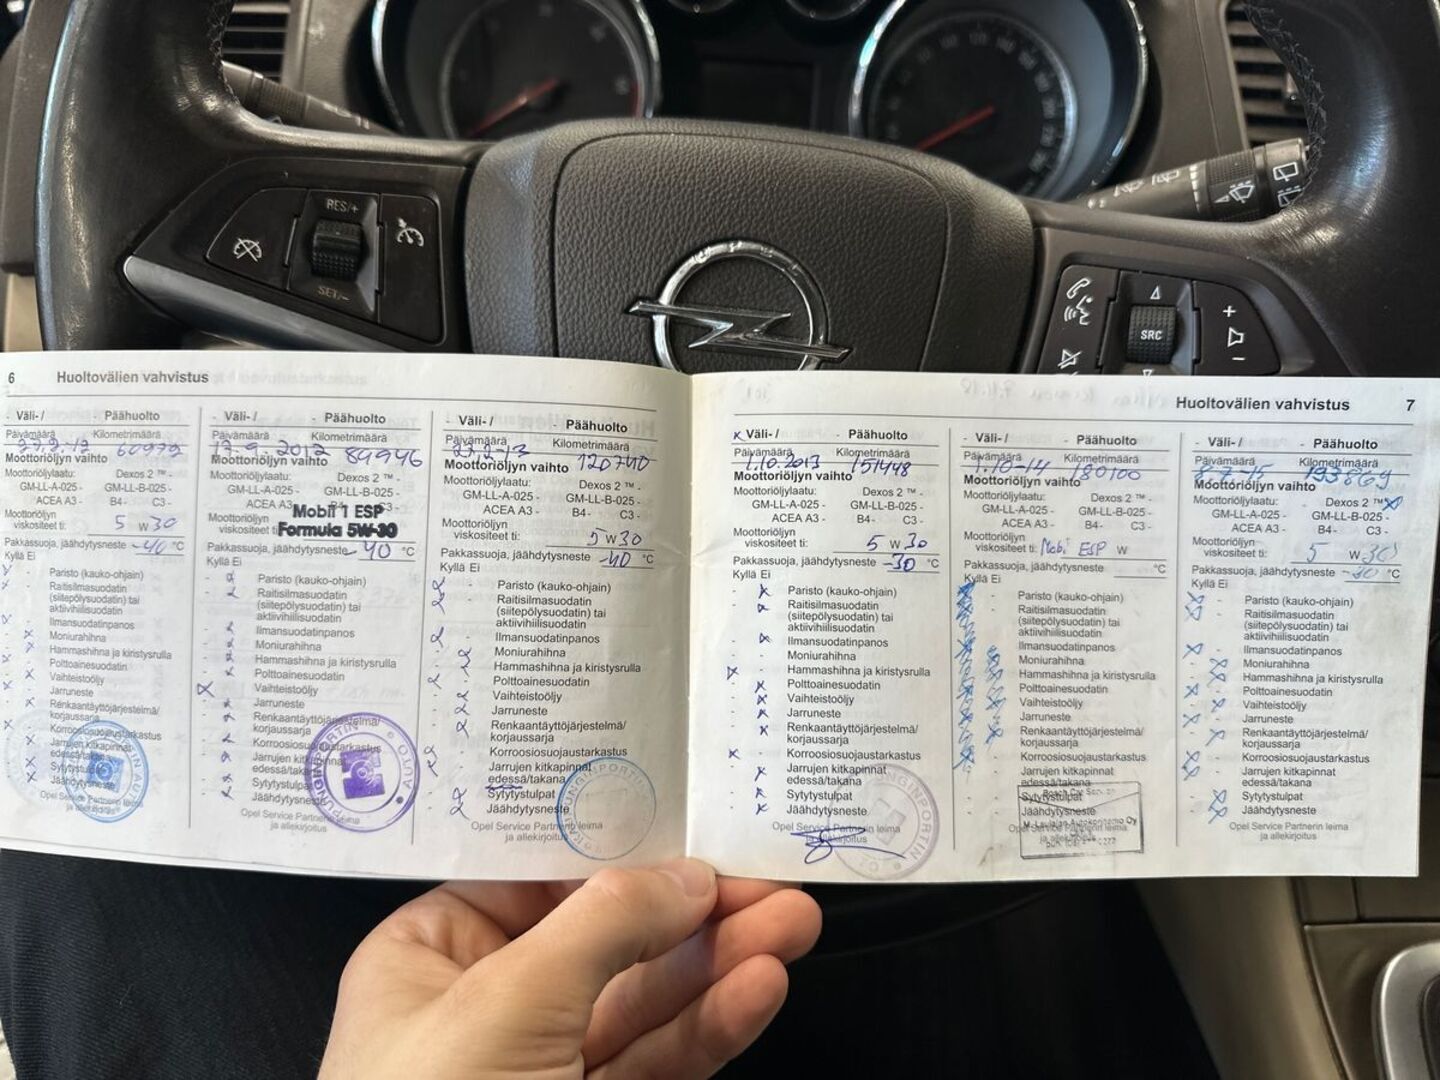 RES/+
SET/–
SRC
+
–
6 Huoltovälien vahvistus
- Väli- / - Päähuolto
Päivämäärä Kilometrimäärä
60972
Moottoriöljyn vaihto
Moottoriöljylaatu: Dexos 2 ™ -
GM-LL-A-025 - GM-LL-B-025 -
ACEA A3 - B4- C3 -
Moottoriöljyn
viskositeet ti: 5 W 30
Pakkassuoja, jäähdytysneste -40 °C
Kyllä Ei
Paristo (kauko-ohjain)
Raitisilmasuodatin
(siitepölysuodatin) tai
aktiivihiilisuodatin
Ilmansuodatinpanos
Moniurahihna
Hammashihna ja kiristysrulla
Polttoainesuodatin
Vaihteistoöljy
Jarruneste
Renkaantäyttöjärjestelmä/
korjaussarja
Korroosiosuojaustarkastus
Jarrujen kitkapinnat
edessä/takana
Sytytystulpat
Jäähdytysneste
Opel Service Partnerin leima
ja allekirjoitus
- Väli- / - Päähuolto
Päivämäärä Kilometrimäärä
17.9.2012 89946
Moottoriöljyn vaihto
Moottoriöljylaatu: Dexos 2 ™ -
GM-LL-A-025 - GM-LL-B-025 -
ACEA A3
Mobil 1 ESP
Formula 5W-30
Moottoriöljyn
viskositeet ti:
Pakkassuoja, jäähdytysneste -40 °C
Kyllä Ei
Paristo (kauko-ohjain)
Raitisilmasuodatin
(siitepölysuodatin) tai
aktiivihiilisuodatin
Ilmansuodatinpanos
Moniurahihna
Hammashihna ja kiristysrulla
Polttoainesuodatin
Vaihteistoöljy
Jarruneste
Renkaantäyttöjärjestelmä/
korjaussarja
Korroosiosuojaustarkastus
Jarrujen kitkapinnat
edessä/takana
Sytytystulpat
Jäähdytysneste
Opel Service Partnerin leima
ja allekirjoitus
- Väli- / - Päähuolto
Päivämäärä Kilometrimäärä
120740
Moottoriöljyn vaihto
Moottoriöljylaatu: Dexos 2 ™ -
GM-LL-A-025 - GM-LL-B-025 -
ACEA A3 - B4- C3 -
Moottoriöljyn
viskositeet ti: 5 W 30
Pakkassuoja, jäähdytysneste -40 °C
Kyllä Ei
Paristo (kauko-ohjain)
Raitisilmasuodatin
(siitepölysuodatin) tai
aktiivihiilisuodatin
Ilmansuodatinpanos
Moniurahihna
Hammashihna ja kiristysrulla
Polttoainesuodatin
Vaihteistoöljy
Jarruneste
Renkaantäyttöjärjestelmä/
korjaussarja
Korroosiosuojaustarkastus
Jarrujen kitkapinnat
edessä/takana
Sytytystulpat
Jäähdytysneste
Huoltovälien vahvistus 7
x Väli- / - Päähuolto
Päivämäärä Kilometrimäärä
1.10.2013 151448
Moottoriöljyn vaihto
Moottoriöljylaatu: Dexos 2 ™ -
GM-LL-A-025 - GM-LL-B-025 -
ACEA A3 - B4- C3 -
Moottoriöljyn
viskositeet ti: 5 W 30
Pakkassuoja, jäähdytysneste -30 °C
Kyllä Ei
Paristo (kauko-ohjain)
Raitisilmasuodatin
(siitepölysuodatin) tai
aktiivihiilisuodatin
Ilmansuodatinpanos
Moniurahihna
Hammashihna ja kiristysrulla
Polttoainesuodatin
Vaihteistoöljy
Jarruneste
Renkaantäyttöjärjestelmä/
korjaussarja
Korroosiosuojaustarkastus
Jarrujen kitkapinnat
edessä/takana
Sytytystulpat
Jäähdytysneste
Opel Service Partnerin leima
ja allekirjoitus
- Väli- / - Päähuolto
Päivämäärä Kilometrimäärä
1.10-14 180100
Moottoriöljyn vaihto
Moottoriöljylaatu: Dexos 2 ™ -
GM-LL-A-025 - GM-LL-B-025 -
ACEA A3 - B4- C3 -
Moottoriöljyn
viskositeet ti: Mobi ESP W
Pakkassuoja, jäähdytysneste °C
Kyllä Ei
Paristo (kauko-ohjain)
Raitisilmasuodatin
(siitepölysuodatin) tai
aktiivihiilisuodatin
Ilmansuodatinpanos
Moniurahihna
Hammashihna ja kiristysrulla
Polttoainesuodatin
Vaihteistoöljy
Jarruneste
Renkaantäyttöjärjestelmä/
korjaussarja
Korroosiosuojaustarkastus
Jarrujen kitkapinnat
edessä/takana
Sytytystulpat
Jäähdytysneste
Opel Service Partnerin leima
ja allekirjoitus
- Väli- / - Päähuolto
Päivämäärä Kilometrimäärä
193869
Moottoriöljyn vaihto
Moottoriöljylaatu: Dexos 2 ™
GM-LL-A-025 - GM-LL-B-025 -
ACEA A3 - B4- C3 -
Moottoriöljyn
viskositeet ti: 5 W 30
Pakkassuoja, jäähdytysneste -30 °C
Kyllä Ei
Paristo (kauko-ohjain)
Raitisilmasuodatin
(siitepölysuodatin) tai
aktiivihiilisuodatin
Ilmansuodatinpanos
Moniurahihna
Hammashihna ja kiristysrulla
Polttoainesuodatin
Vaihteistoöljy
Jarruneste
Renkaantäyttöjärjestelmä/
korjaussarja
Korroosiosuojaustarkastus
Jarrujen kitkapinnat
edessä/takana
Sytytystulpat
Jäähdytysneste
Opel Service Partnerin leima
ja allekirjoitus